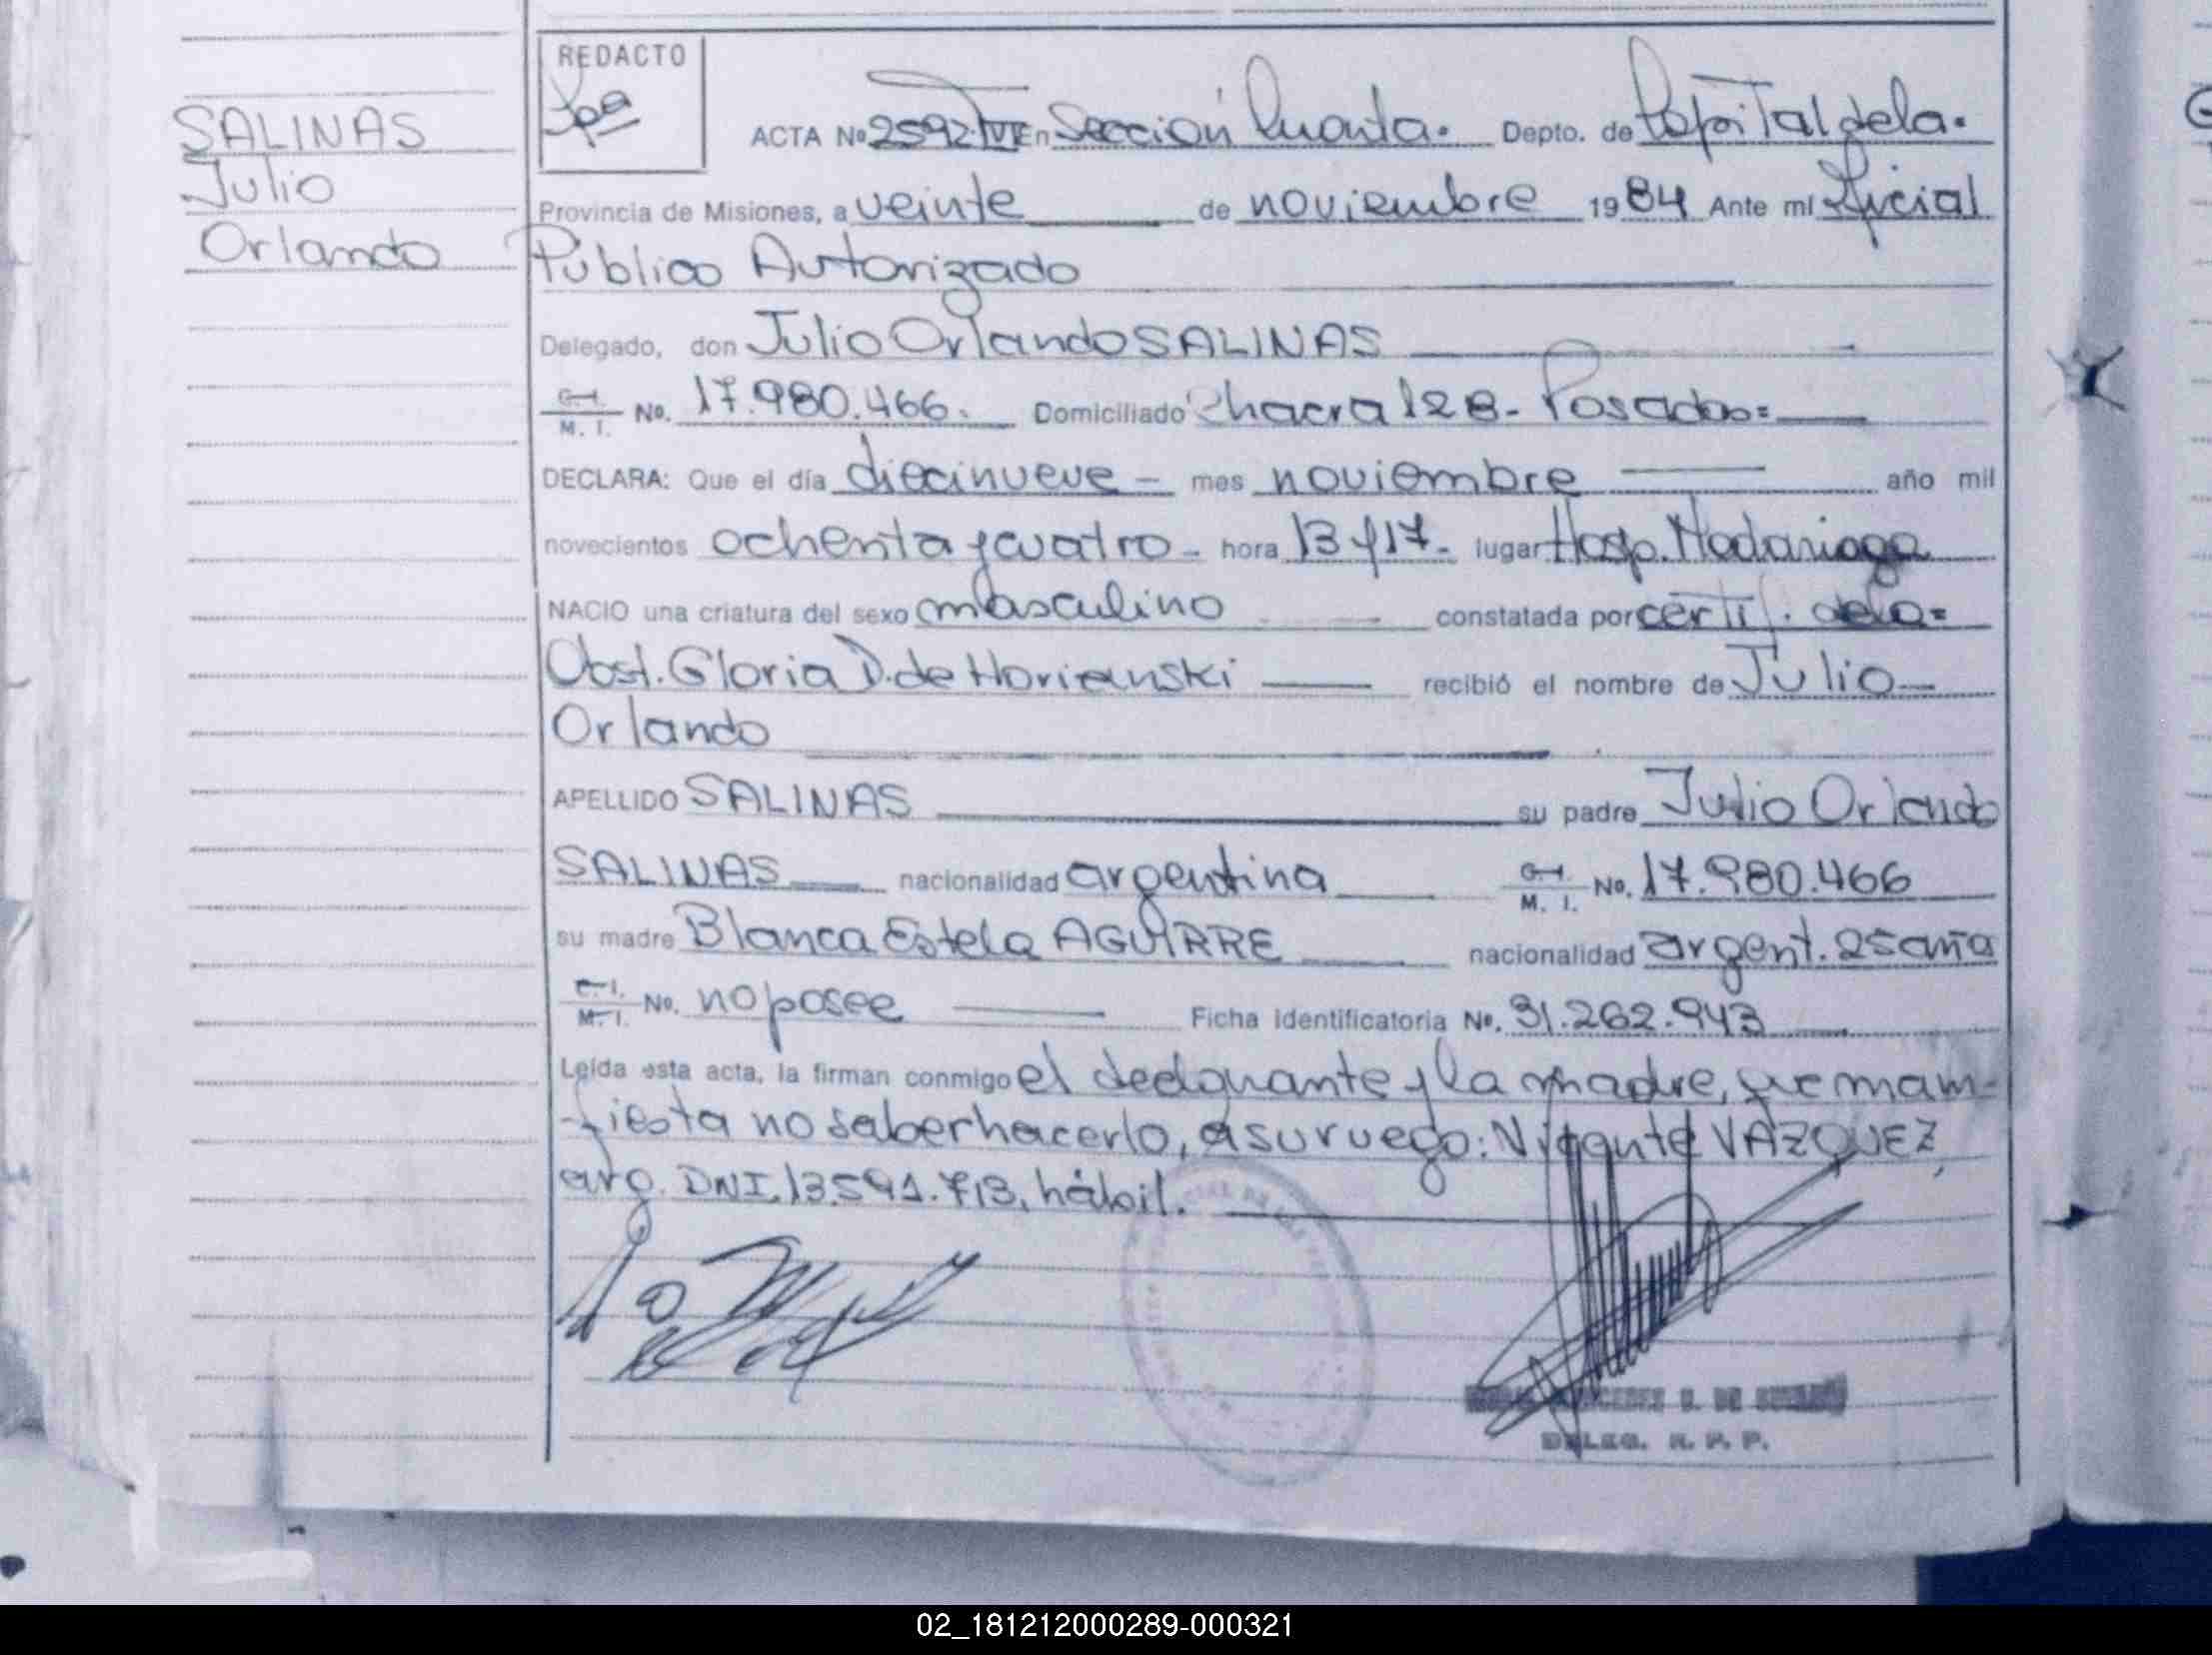 REDACTO
SALINAS
Julio
Orlando
ACTA No 2592 TVI En Sección Cuarta. Depto. de Capital dela.
Provincia de Misiones, a veinte de noviembre 1984 Ante mí Oficial
Público Autorizado
Delegado, don Julio Orlando SALINAS
C. I. M. I. No. 17.980.466. Domiciliado Chacra 128- Posadas=
DECLARA: Que el día diecinueve - mes noviembre año mil
novecientos ochenta y cuatro - hora 13 y 17- lugar Hosp. Madariaga
NACIO una criatura del sexo masculino constatada por certif. dela=
Obst. Gloria D. de Horianski recibió el nombre de Julio
Orlando
APELLIDO SALINAS su padre Julio Orlando
SALINAS nacionalidad argentina C. I. M. I. No. 17.980.466
su madre Blanca Estela AGUIRRE nacionalidad argent. 25 año
C. I. M. I. No. no posee Ficha Identificatoria No. 31.262.943
Leída esta acta, la firman conmigo el declarante y la madre, que mani-
-fiesta no saber hacerlo, a su ruego: VAZQUEZ,
arg. DNI. 13.591.713, hábil.
DELEG. R. P. P.
02_181212000289-000321